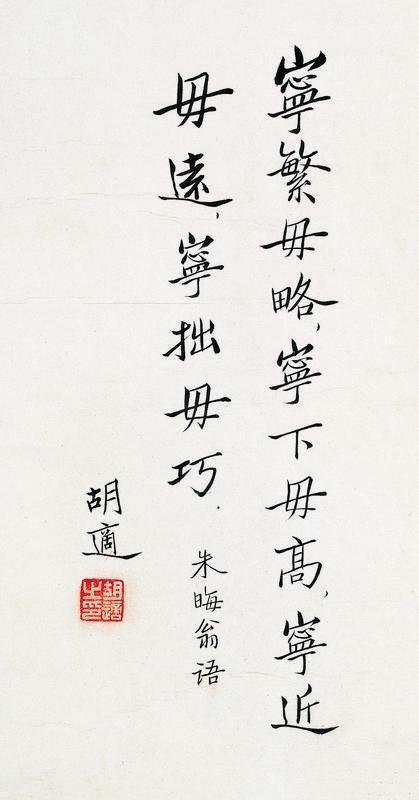 寧繁毋略，寧下毋高，寧近
毋遠，寧拙毋巧．
朱晦翁语
胡適
胡適之印